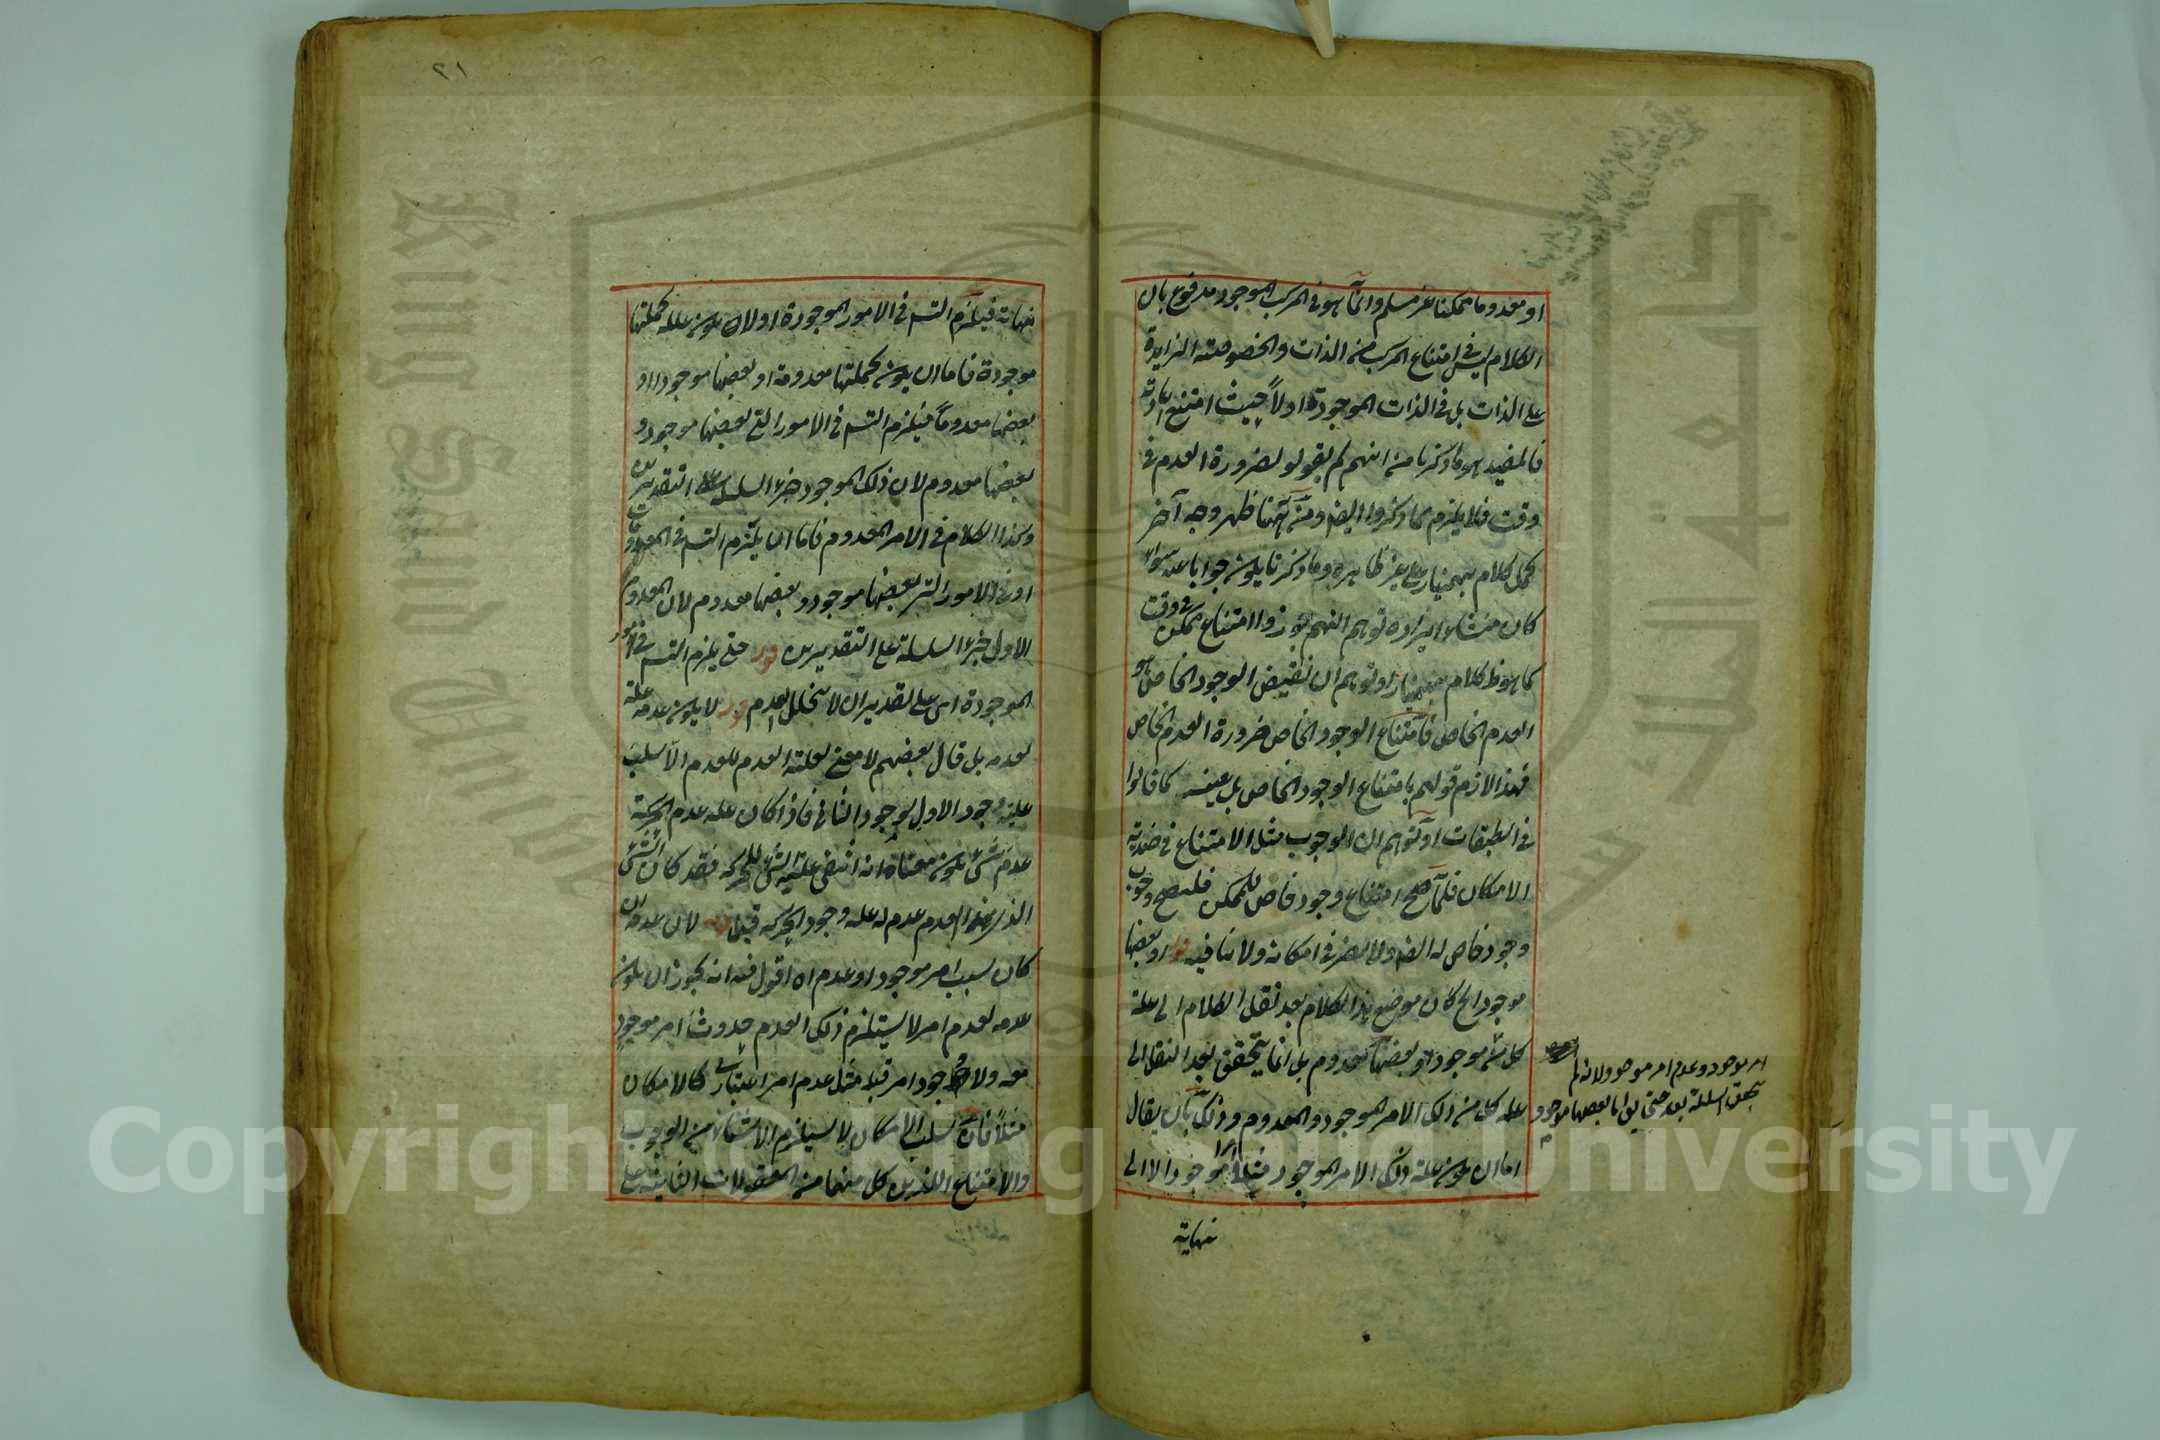 او معدوما ممكنا غير مسلم وانما هو في المركب الموجود مدفوع بان
الكلام ليس في امتناع المركب من الذات والخصوصية الزايدة
على الذات بل في الذات الموجودة اولا حيث امتنع اعادته
فالمفيد هو ما ذكرنا من انهم لم يقولوا بضرورة العدم في
وقت فلا يلزم مما ذكروا ايضا ومن ههنا ظهر وجه آخر
لحمل كلام بهمنيار على غير ظاهره وما ذكرنا يكون جوابا عنه سواء
كان منشاء ايراده توهم انهم جوزوا امتناع ممكن في وقت
كما هو ظ كلام بهمنيار او توهم ان نقيض الوجود الخاص هو
العدم الخاص فامتناع الوجود الخاص ضرورة العدم الخاص
فهذا لازم قولهم بامتناع الوجود الخاص بل عينه كما قالوا
في الطبقات او توهم ان الوجوب مثل الامتناع في ضدية
الامكان فلما صح امتناع وجود خاص للممكن فليصح وجوب
وجود خاص له ايضا ولا يضر في امكانه ولا ينافيه قوله او بعضها
موجود الخ كان موضع هذا الكلام بعد نقل الكلام الى علة
كل شيء موجود او بعضها معدوم بل انما يتحقق بعد النقل الى
علة كل من ذلك الامر الموجود والمعدوم وذلك بان يقال
اما ان يكون علة ذلك الامر الموجود مثلا امرا موجودا لا الى
نهاية
امر موجود وعدم امر موجود ولانه لم
يتحقق السلسلة بعد حتى يق اما بعضها موجود
٢١
نهاية فيلزم التس في الامور الموجودة اولا يكون علله بجملتها
موجودة فاما ان يكون بجملتها معدومة او بعضها موجودا او
بعضها معدوما فيلزم التس في الامور التي بعضها موجود و
بعضها معدوم لان ذلك الموجود جزء السلسلة على التقديرين
وكذا الكلام في الامر المعدوم فاما ان يلزم التس في المعدومات
او في الامور التي بعضها موجود وبعضها معدوم لان المعدوم
الاول جزء السلسلة على التقديرين قوله حتى يلزم التس في الامور
الموجودة اي على تقدير ان لا يتخلل العدم قوله لا يكون عدمه علة
لعدمه بل قال بعضهم لا معنى لعلية العدم للعدم الا سلب
علية وجود الاول لوجود الثاني فاذا كان علة عدم الحركة
عدم شيء يكون معناه انه انتفى علية الشيء للحركة فقد كان الشيء
الذي هذا العدم عدم له علة وجود الحركة قبل قوله لان عدمه ان
كان بسبب امر موجود او عدم اه اقول فيه انه يجوز ان يكون
عدمه لعدم امر لا يستلزم ذلك العدم حدوث امر موجود
معه ولا وجود امر قبله مثل عدم امر اعتباري كالامكان
مثلا فان سلب الامكان لا يستلزم الا شيئا من الوجوب
والامتناع اللذين كل منهما من المعقولات الثانية على